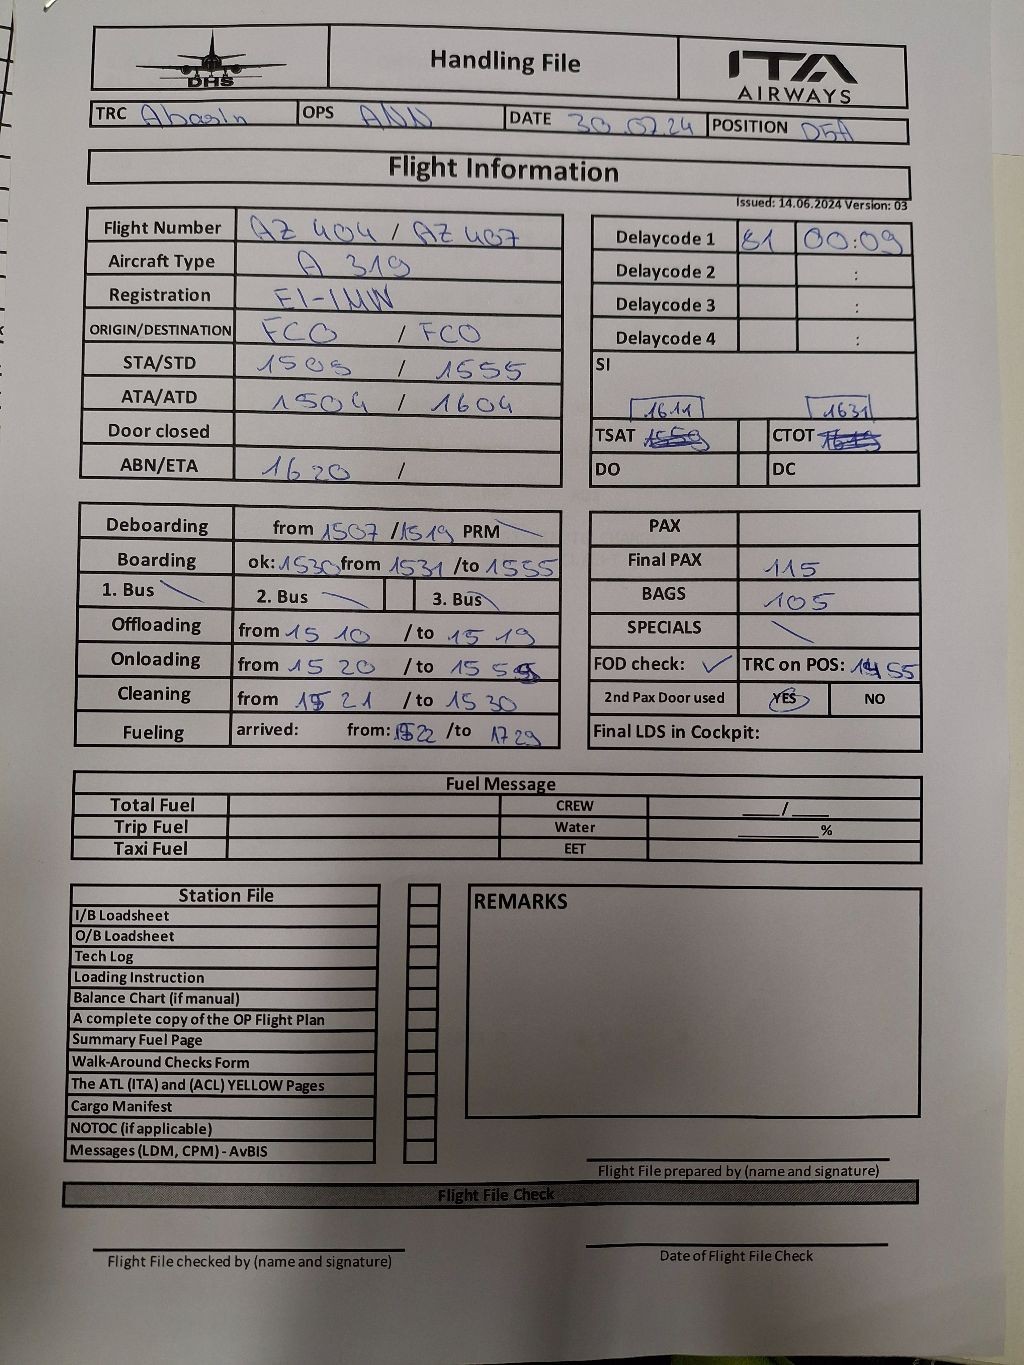 DHS
Handling File
ITA
AIRWAYS
TRC Abasin OPS ANN DATE 30.07.24 POSITION D5A
Flight Information
Issued: 14.06.2024 Version: 03
Flight Number AZ 404 / AZ 407
Aircraft Type A 319
Registration EI-IMW
ORIGIN/DESTINATION FCO / FCO
STA/STD 1505 / 1555
ATA/ATD 1504 / 1604
Door closed
ABN/ETA 1620 /
Delaycode 1 81 00:09
Delaycode 2 :
Delaycode 3 :
Delaycode 4 :
SI
1611 1631
TSAT 1559 CTOT 1619
DO DC
Deboarding from 1507 /1519 PRM
Boarding ok: 1530 from 1531 /to 1555
1. Bus 2. Bus 3. Bus
Offloading from 15 10 /to 15 19
Onloading from 15 20 /to 15 55
Cleaning from 15 21 /to 15 30
Fueling arrived: from: 1522 /to 17 29
PAX
Final PAX 115
BAGS 105
SPECIALS
FOD check: ✓ TRC on POS: 1455
2nd Pax Door used YES NO
Final LDS in Cockpit:
Fuel Message
Total Fuel CREW ____/____
Trip Fuel Water ________%
Taxi Fuel EET
Station File
I/B Loadsheet
O/B Loadsheet
Tech Log
Loading Instruction
Balance Chart (if manual)
A complete copy of the OP Flight Plan
Summary Fuel Page
Walk-Around Checks Form
The ATL (ITA) and (ACL) YELLOW Pages
Cargo Manifest
NOTOC (if applicable)
Messages (LDM, CPM) - AvBIS
REMARKS
Flight File prepared by (name and signature)
Flight File Check
Flight File checked by (name and signature)
Date of Flight File Check